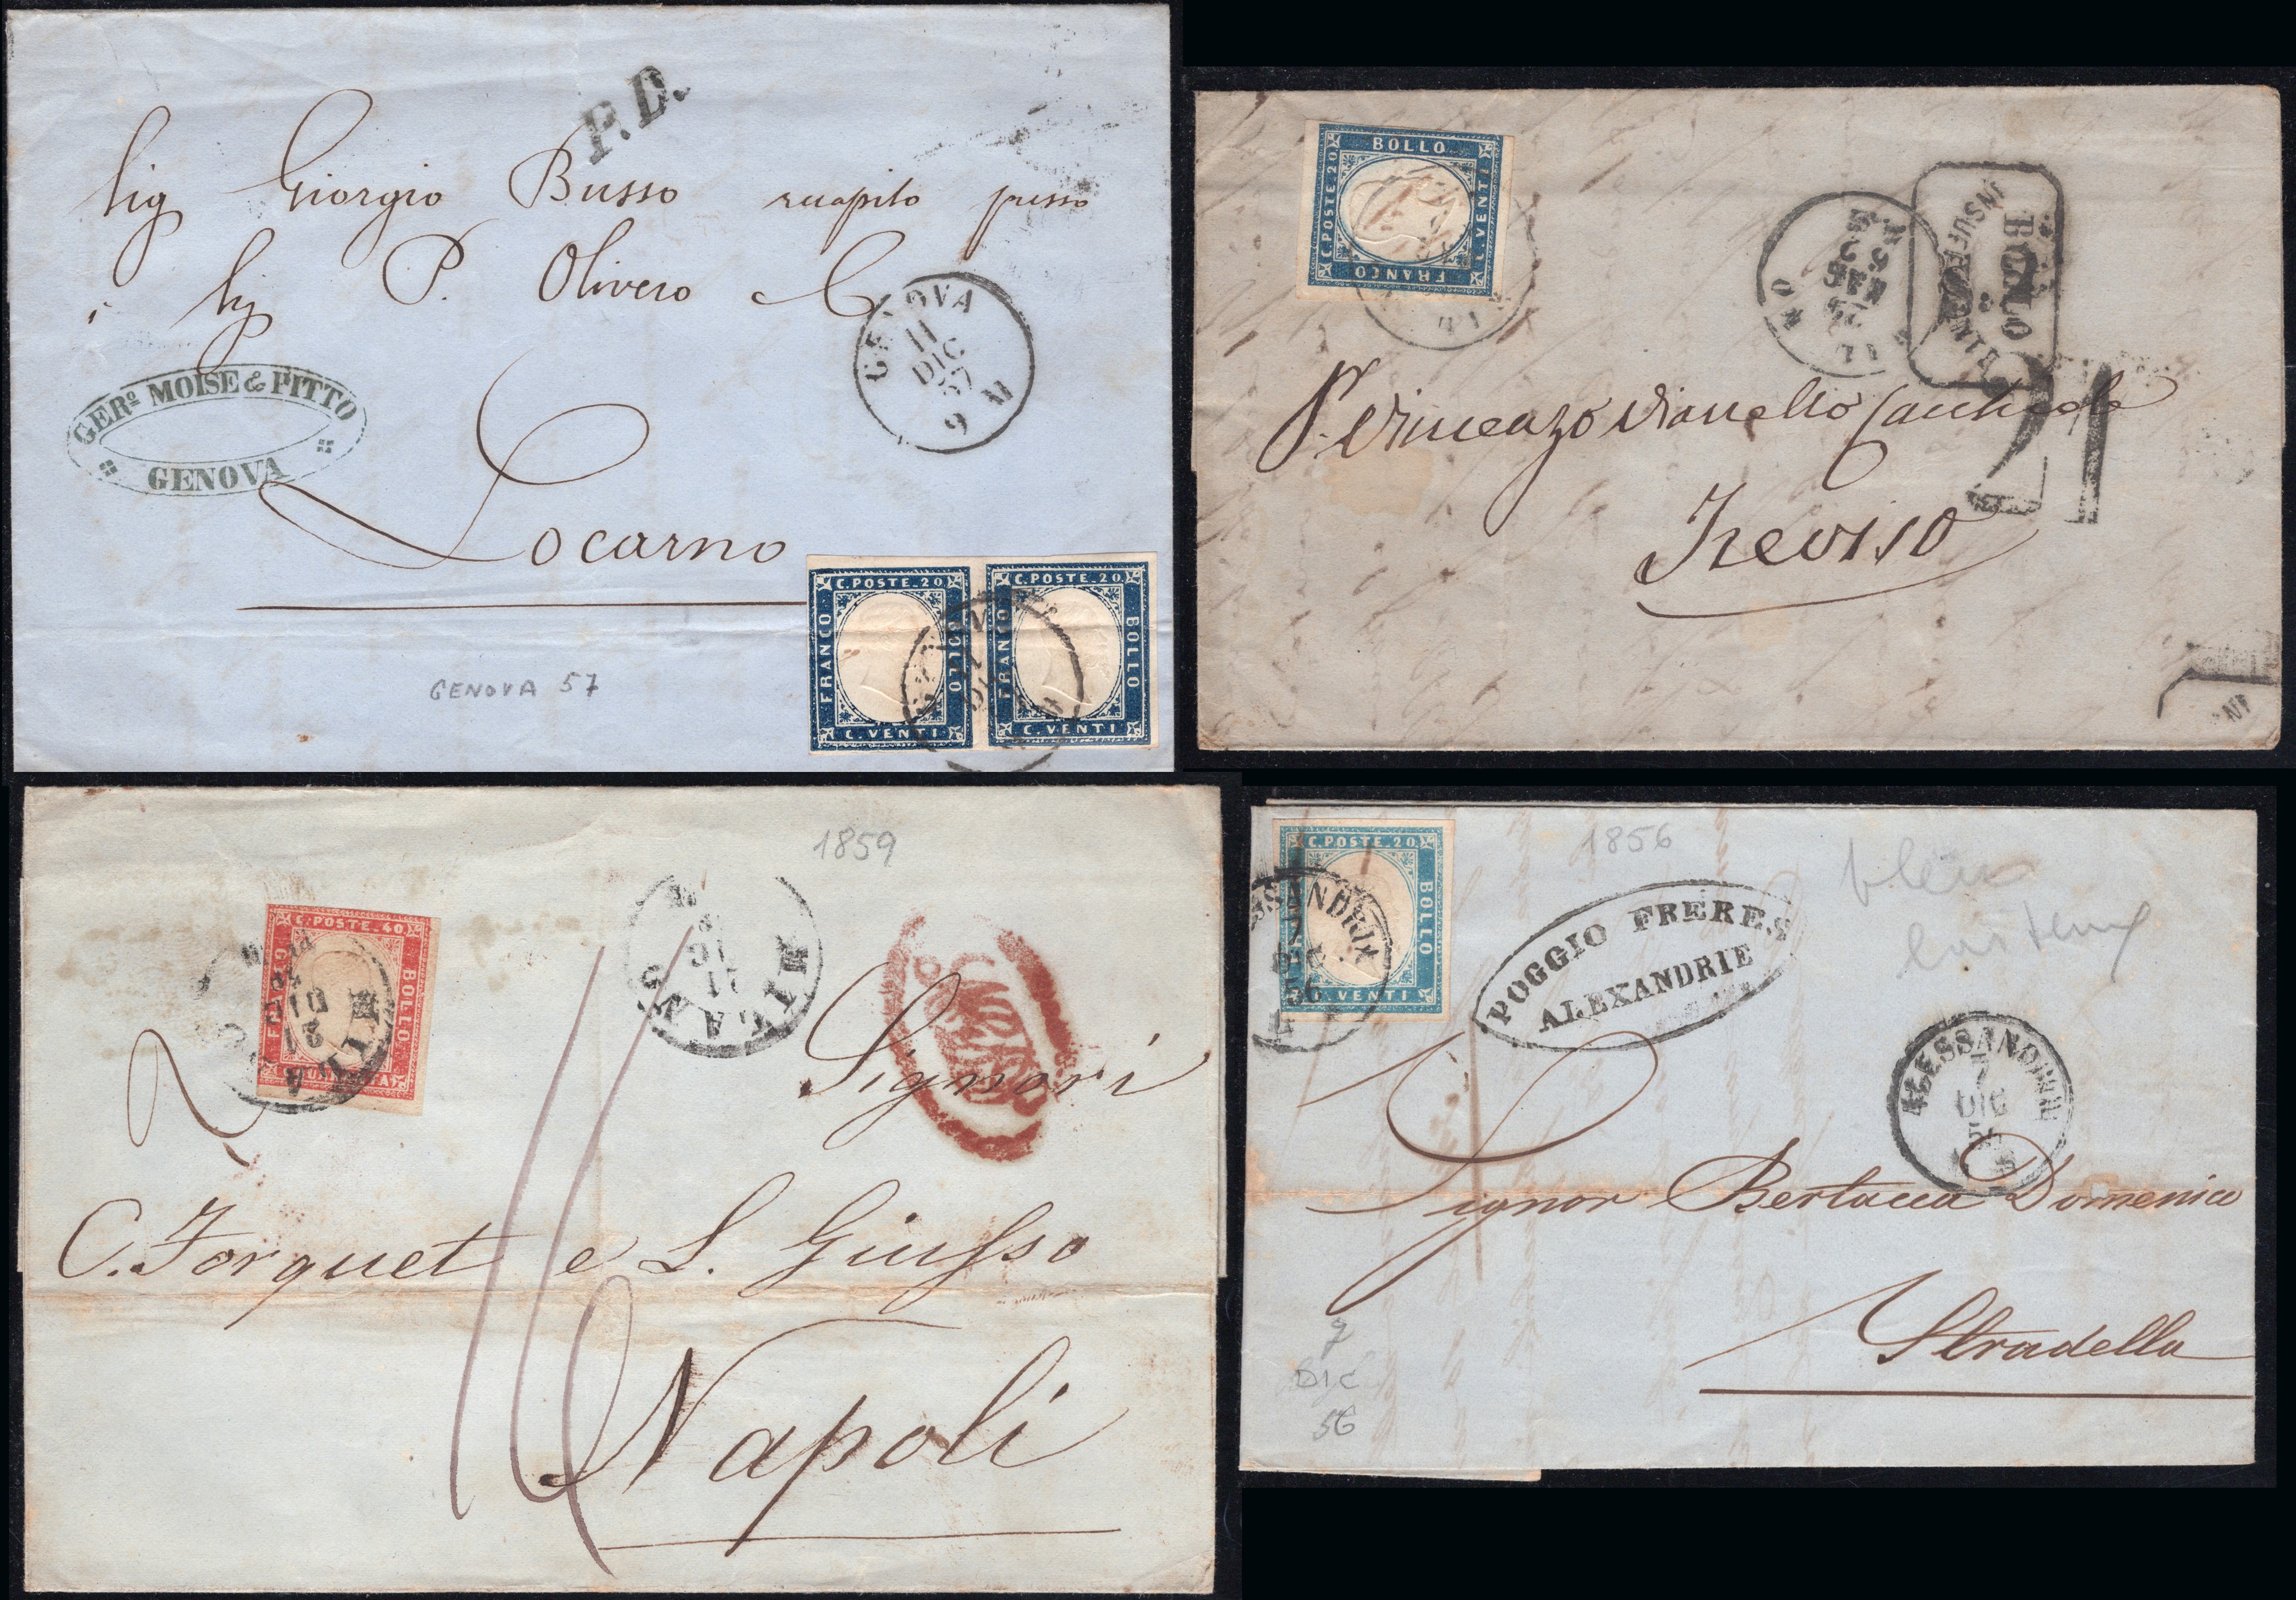 P.D.
Sig Giorgio Busso recapito presso
i Sig P. Olivero C
GENOVA
11
DIC
57
9 M
GERº MOISE & PITTO
GENOVA
Locarno
GENOVA 57
C. POSTE. 20. C. POSTE. 20.
FRANCO BOLLO FRANCO BOLLO
C. VENTI C. VENTI
BOLLO
C. POSTE. 20
C. VENTI
FRANCO
BOLLO
INSUFFICIENTE
Vincenzo Vianello
Treviso
1859
C. POSTE. 40
BOLLO
MILANO
21
DIC
MILANO
21
Signori
C. Forquet e L. Giusso
Napoli
1856
C. POSTE. 20.
BOLLO
C. VENTI
ALESSANDRIA
7
DIC
56
POGGIO FRERES
ALEXANDRIE
bleu
ALESSANDRIA
7
DIC
Signor Bertacca Domenico
Stradella
7
DIC
56